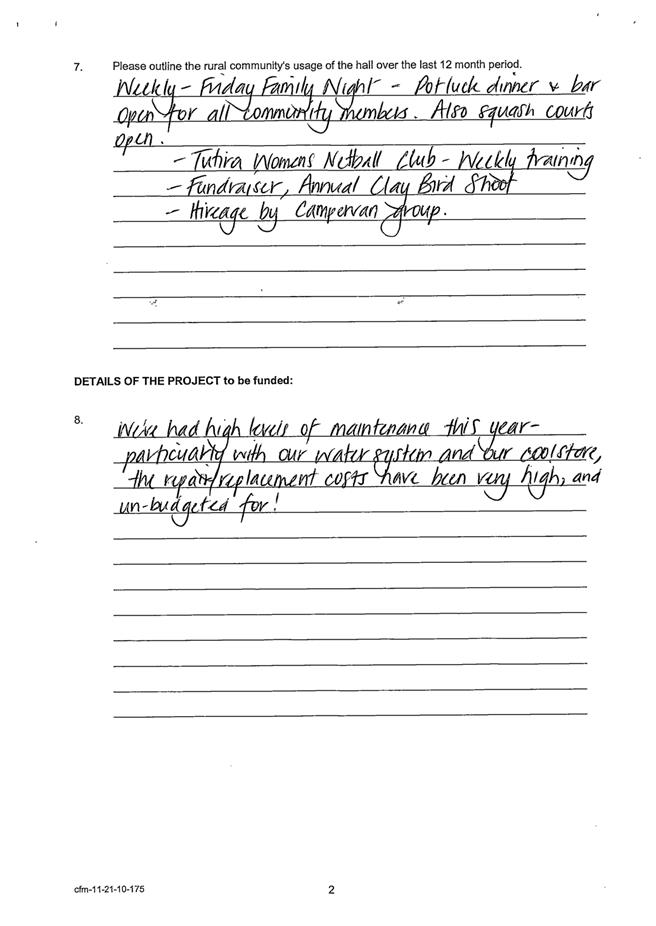 7. Please outline the rural community's usage of the hall over the last 12 month period.
Weekly - Friday Family Night - Potluck dinner & bar
open for all community members. Also squash courts
open.
- Tutira Womens Netball Club - Weekly training
- Fundraiser, Annual Clay Bird Shoot
- Hireage by Campervan group.
DETAILS OF THE PROJECT to be funded:
8. We've had high levels of maintenance this year-
particularly with our water system and our coolstore,
the repair/replacement costs have been very high, and
un-budgeted for!
cfm-11-21-10-175
2